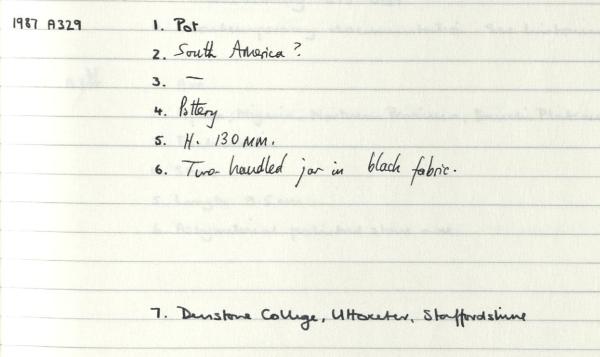 1987 A329 1. Pot
2. South America?
3. —
4. Pottery
5. H. 130mm.
6. Two-handled jar in black fabric.
7. Denstone College, Uttoxeter, Staffordshire